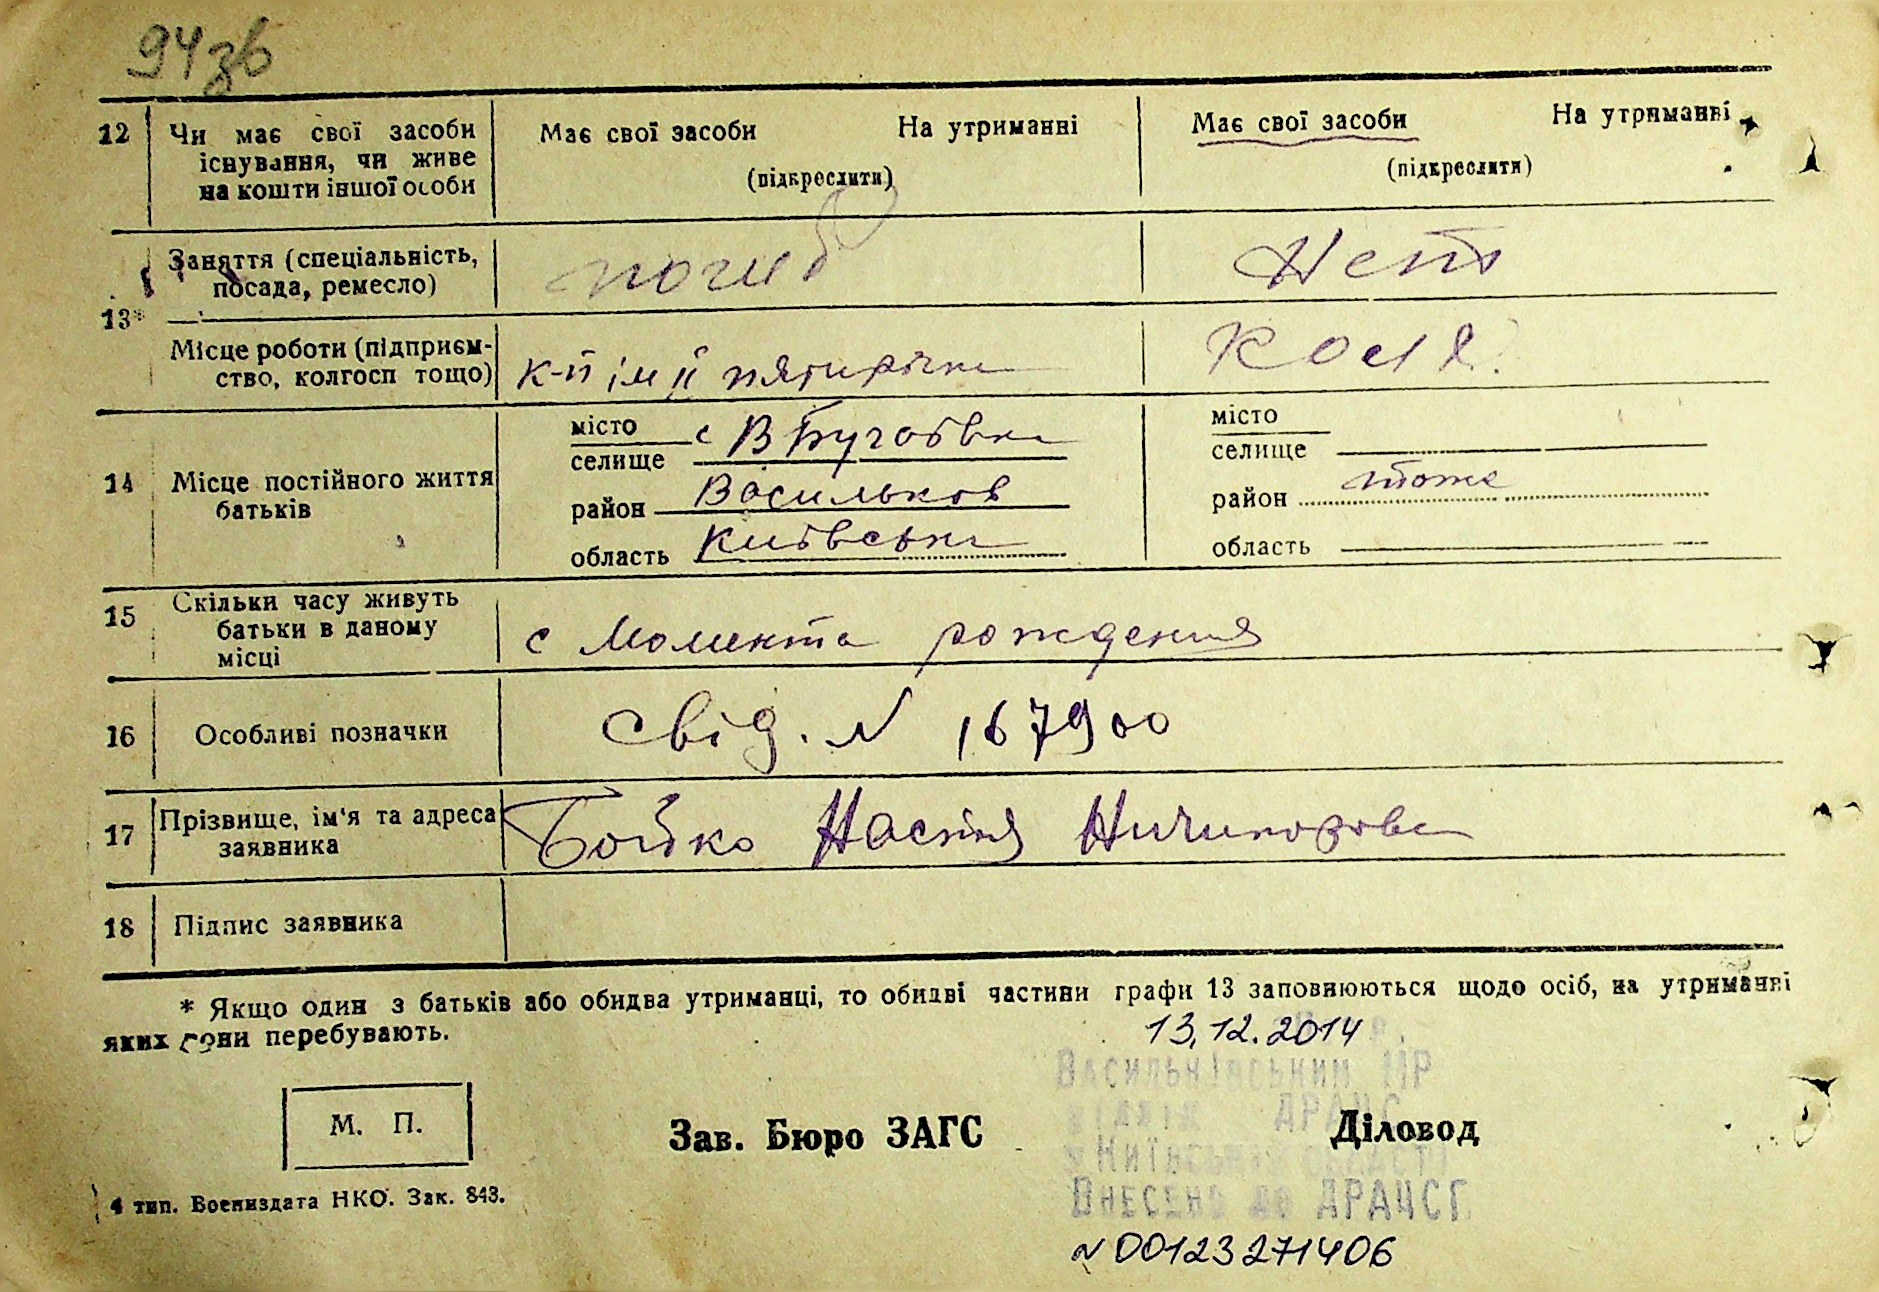 94зв
12 Чи має свої засоби існування, чи живе на кошти іншої особи
Має свої засоби На утриманні
(підкреслити)
Має свої засоби На утриманні
(підкреслити)
13*
Заняття (спеціальність, посада, ремесло)
погиб
Місце роботи (підприємство, колгосп тощо)
к-п ім ІІ пятирічки
14 Місце постійного життя батьків
місто
селище с В Бугаївка
район Васильков
область Київська
місто
селище
район тоже
область
15 Скільки часу живуть батьки в даному місці
с момента рождения
16 Особливі позначки
Свід. N 167900
17 Прізвище, ім'я та адреса заявника
Бойко Настя Ничипоровна
18 Підпис заявника
* Якщо один з батьків або обидва утриманці, то обидві частини графи 13 заповнюються щодо осіб, на утриманні
яких вони перебувають.
13.12.2014
Васильківським МР
відділ ДРАЦС
у Київській області
Внесено до ДРАЦСГ
М. П.
Зав. Бюро ЗАГС
Діловод
4 тип. Воениздата НКО. Зак. 843.
N 00123271406